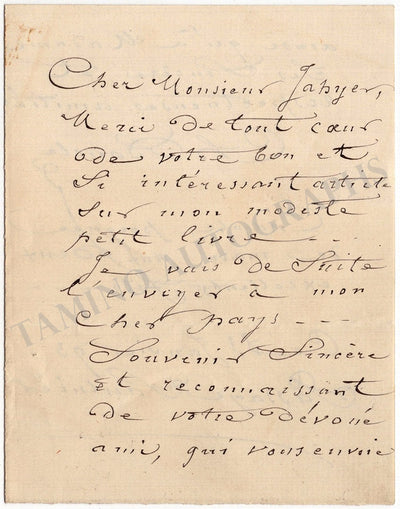 Cher Monsieur Jahyer,
Merci de tout cœur
de votre bon et
si intéressant article
sur mon modeste
petit livre - - -
Je vais de suite
l'envoyer à mon
cher pays - - -
Souvenir sincère
et reconnaissant
de votre dévoué
ami, qui vous envoie
TAMINO AUTOGRAPHS